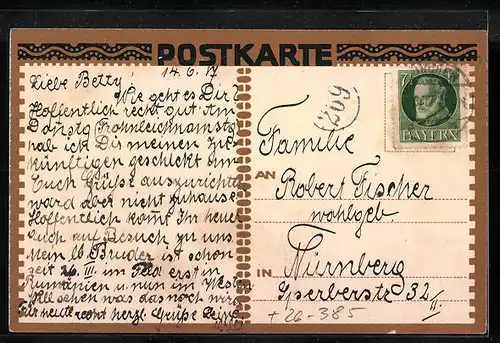 POSTKARTE
14.6.17
Liebe Betty!
Wie geht es Dir?
Hoffentlich recht gut. Am
Donstg (Frohnleichnamstg)
hab ick Dis meinen zu-
künftigen geschickt um
Euch Grüße auszurichten
ward aber nicht zuhause
Hoffentlich komt Ihr heuer
auch auf Besuch zu uns.
Mein lb Bruder ist schon
seit 26. III. im Feld erst in
Rumänien u nun im Westen
sehen was das noch wird
Für heute recht herzl. Grüße
BAYERN
Familie
AN
Robert Fischer
wohlgeb
IN
Nürnberg
Sperberstr 32/II.
+ 26-385